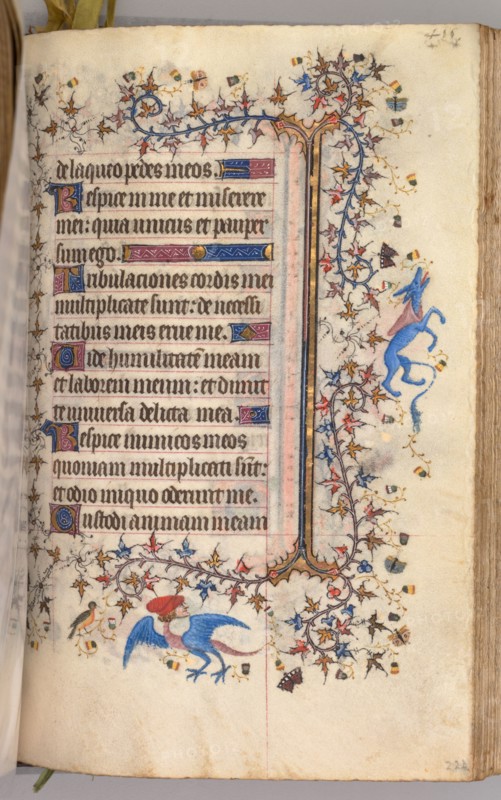 de laqueo pedes meos.
Respice in me et miserere
mei: quia unicus et pauper
sum ego.
Tribulaciones cordis mei
multiplicate sunt: de necessi
tatibus meis erue me.
Vide humilitatē meam
et laborem meum: et dimit
te universa delicta mea.
Respice inimicos meos
quoniam multiplicati sūt:
et odio iniquo oderunt me.
Custodi animam meam